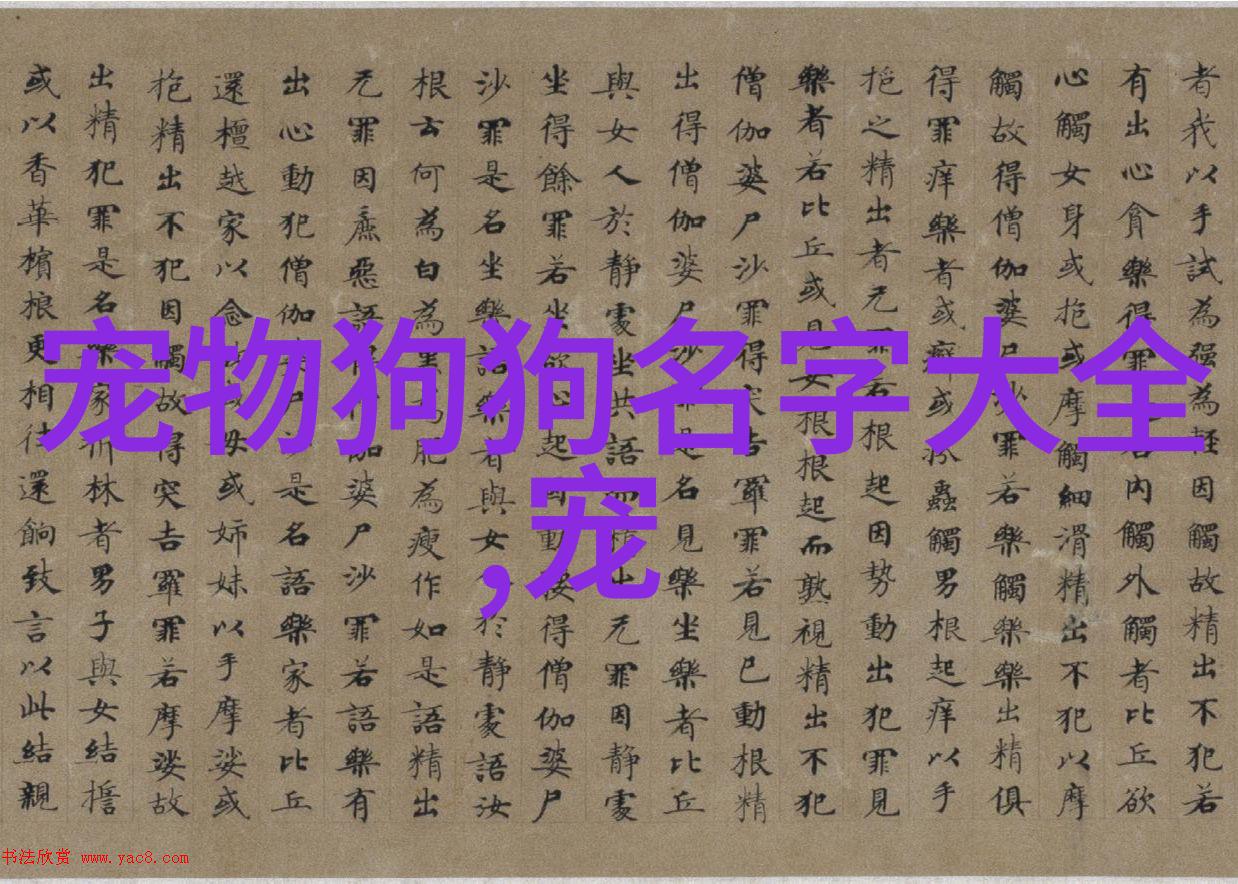 宠物狗狗名字大全
,宠
者我以手試為強為輕因觸故精出不犯若
有出心貪樂得罪若內觸外觸者比丘欲
心觸女身或抱或摩觸細滑精出不犯以摩
觸故得僧伽婆尸沙罪若樂觸樂樂出精俱
得罪痒樂者或癬或蟲觸男根起痒以手
抱之精出者无罪若根起因勢動出犯罪見
樂者若比丘或見女根根起而熟視精出不犯
僧伽婆尸沙罪得突吉羅罪若見已動根精
出得僧伽婆尸沙罪是名見樂坐樂者比丘
與女人於靜處坐共語而精出无罪因靜處
坐得餘罪若坐欲心起因動便得僧伽婆尸
沙罪是名坐樂語樂者與女人於靜處語汝
根云何為白為黑為肥為瘦作如是語精出
无罪因麁惡語得僧伽婆尸沙罪若語樂有
出心動犯僧伽婆尸沙是名語樂家者比丘
還檀越家以念故或母或姉妹以手摩娑或
抱精出不犯因觸故得突吉羅罪若摩娑故
出精犯罪是名樂家折林者男子與女結擔
或以香華檳榔更相往還餉致言以此結親
书法欣赏 www.yac8.com